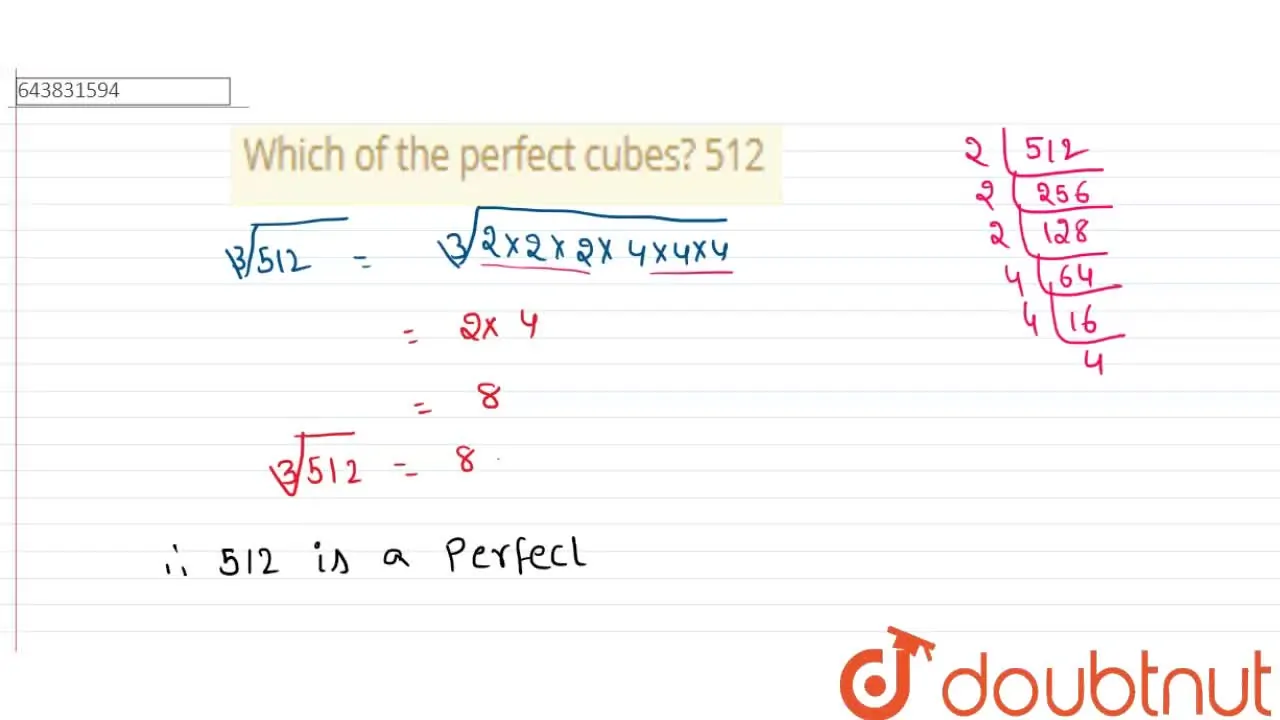 643831594
Which of the perfect cubes? 512
∛512 = ∛2×2×2×4×4×4
= 2×4
= 8
∛512 = 8
∴ 512 is a Perfect
2 | 512
2 | 256
2 | 128
4 | 64
4 | 16
4
doubtnut